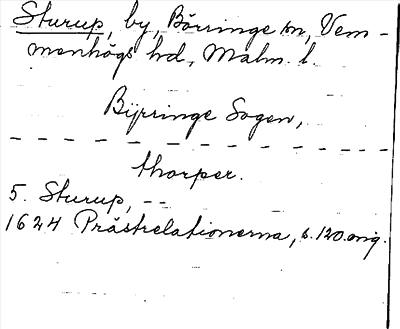 Sturup, by, Börringe sn, Vem-
menhögs hd, Malm. l.
Byrringe Sogen,
- - - - - - - - - - - - - -
thorper.
5. Sturup, --
1624 Prästrelationerna, s. 120.orig.